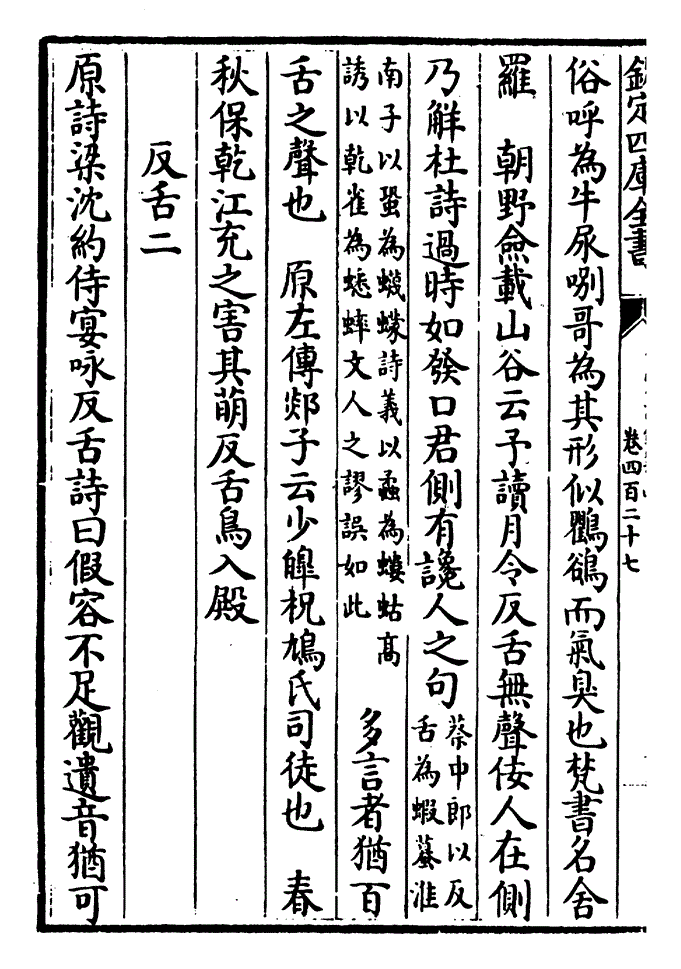 欽定四庫全書
卷四百二十七
俗呼為牛屎唎哥為其形似鸜鵒而氣臭也梵書名舍
羅　朝野僉載山谷云予讀月令反舌無聲佞人在側
乃解杜詩過時如發口君側有讒人之句蔡中郎以反
舌為蝦蟇淮
南子以蛩為蠛蠓詩義以蟊為螻蛄高
誘以乾雀為蟋蟀文人之謬誤如此
多言者猶百
舌之聲也　原左傳郯子云少皥祝鳩氏司徒也　春
秋保乾江充之害其萌反舌鳥入殿
反舌二
原詩梁沈約侍宴咏反舌詩曰假容不足觀遺音猶可